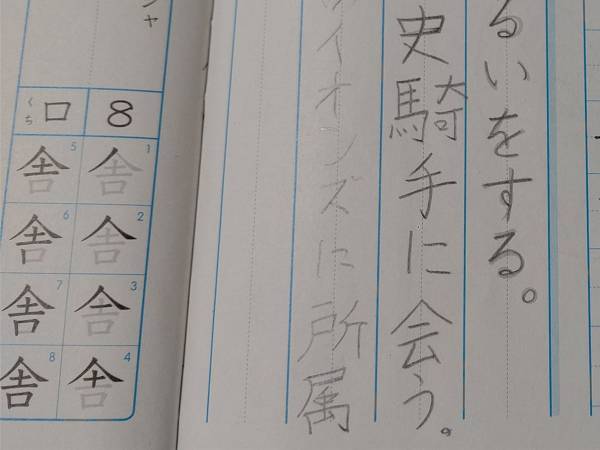 るいをする。
史騎手に会う。
イオンズに所属
ャ
8
口
くち
舎 1
舎 2
舎 3
舎 4
舎 5
舎 6
舎 7
舎 8